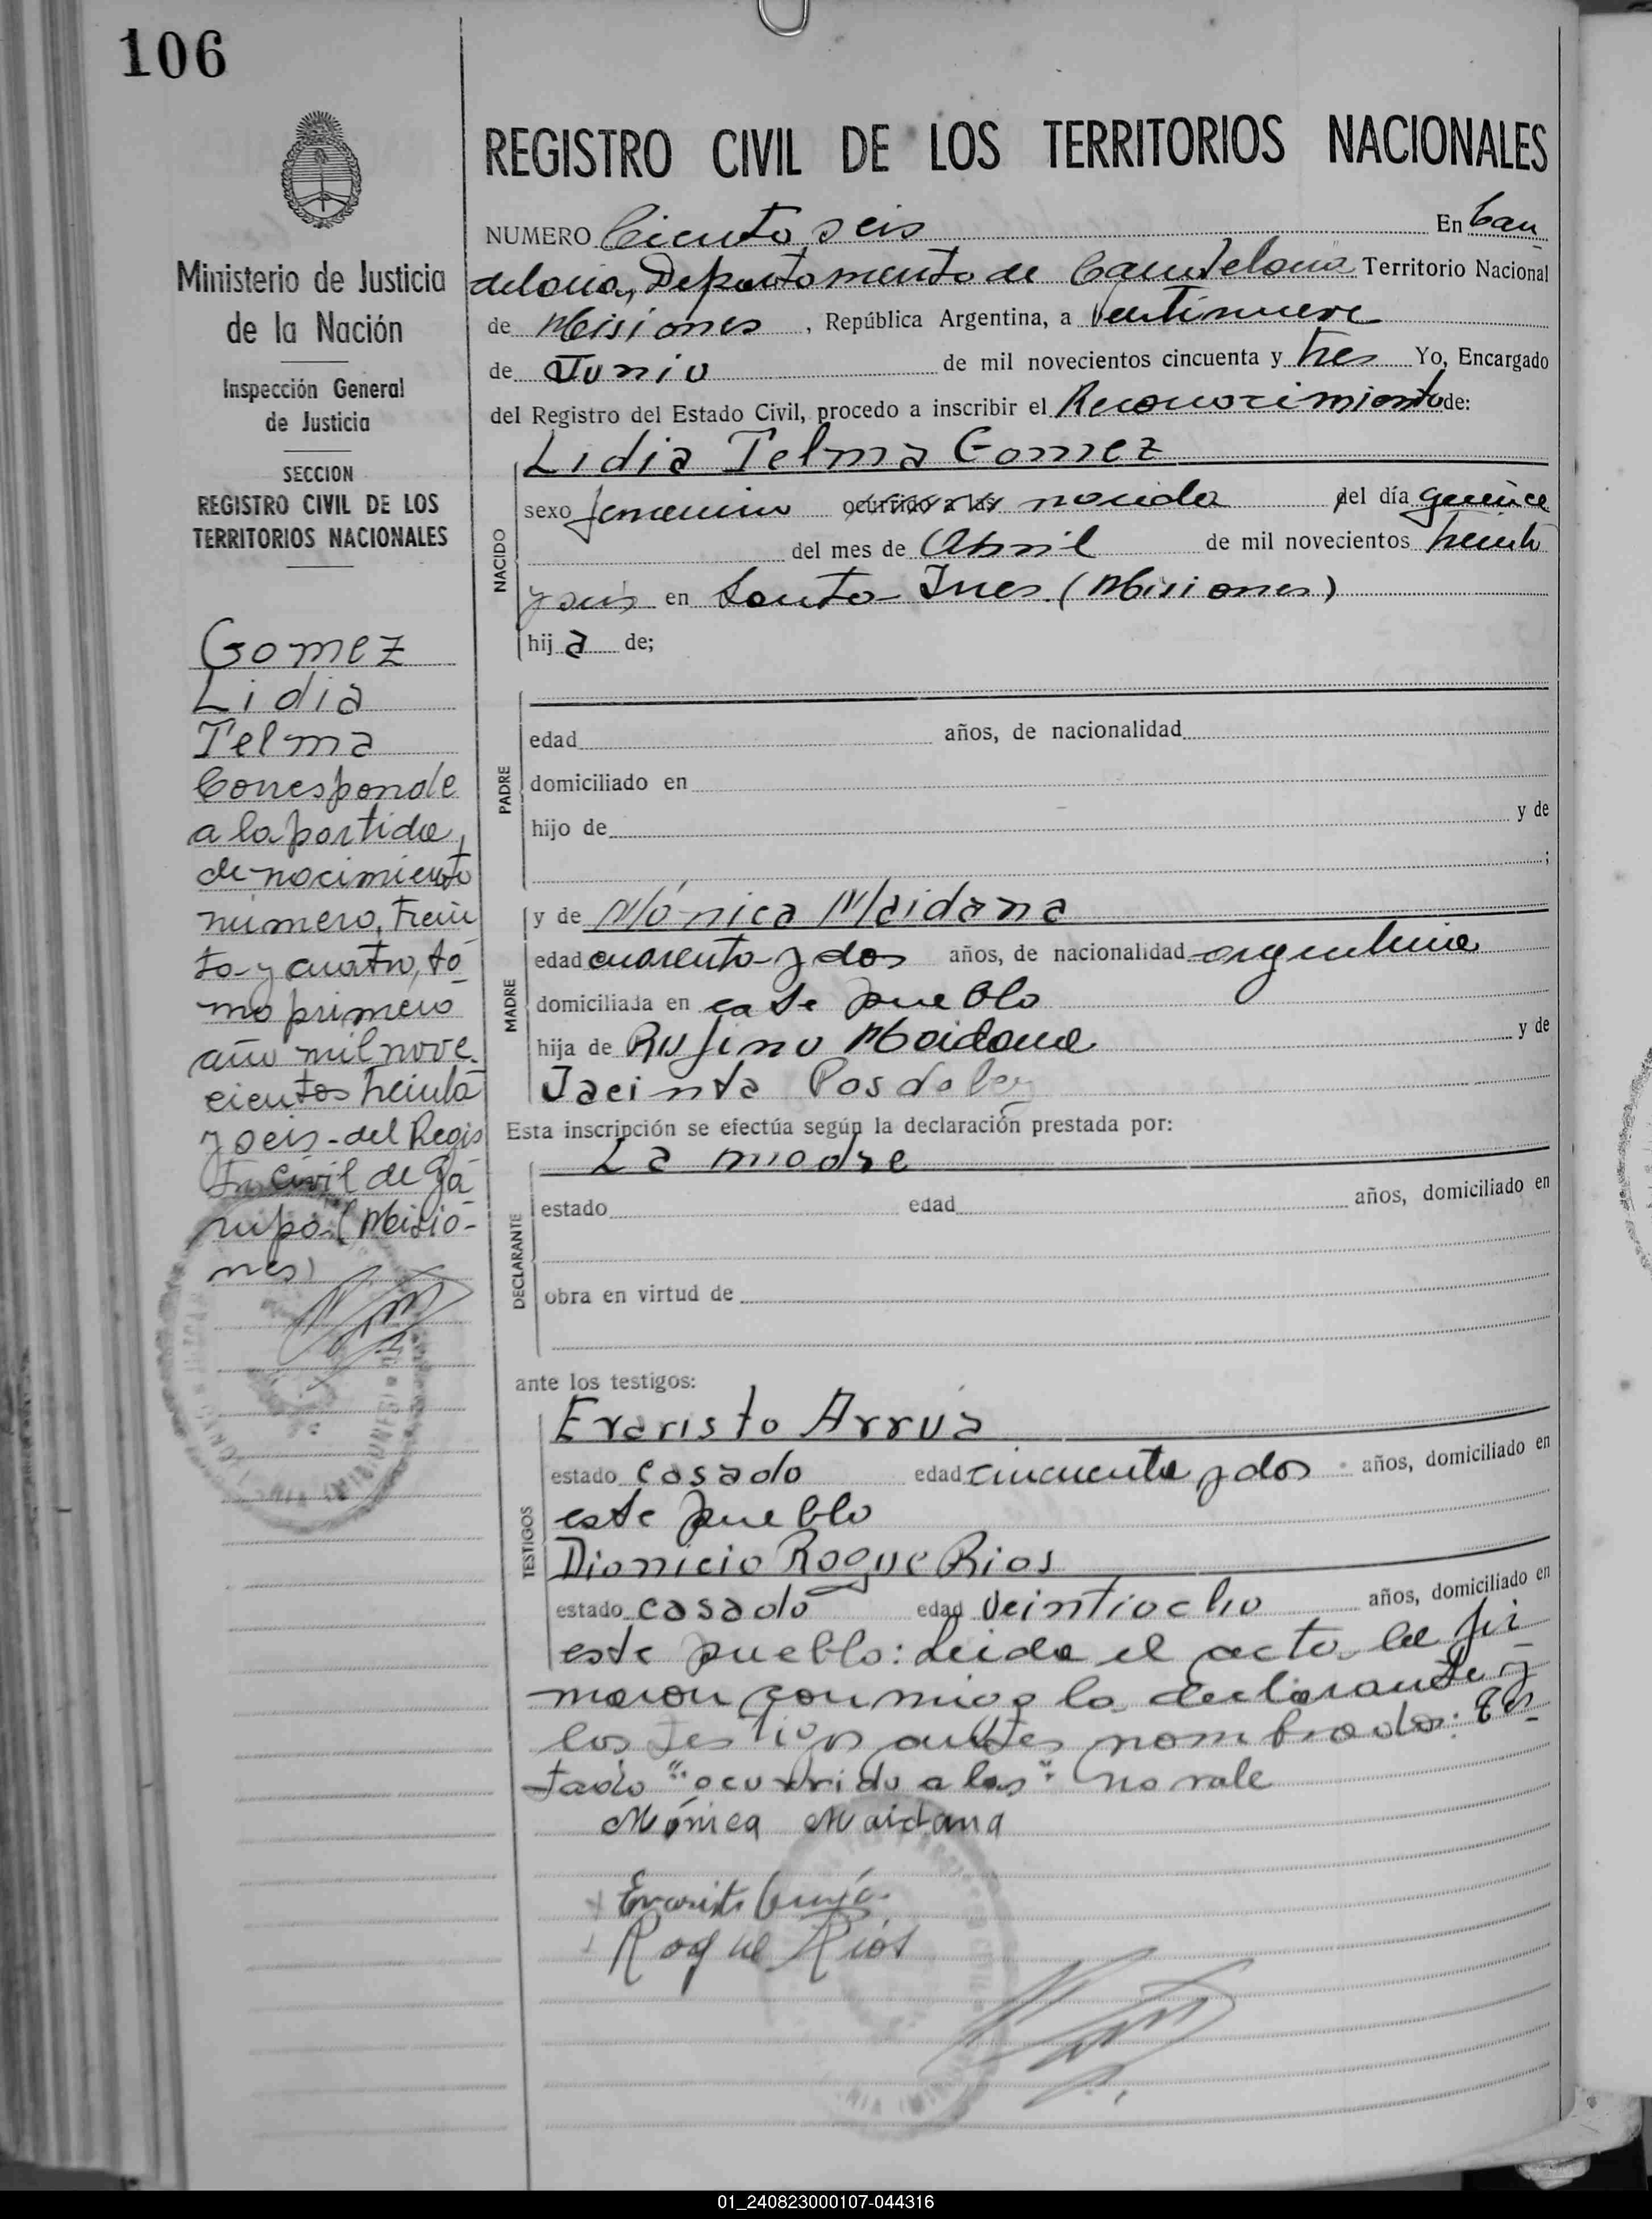 106
REGISTRO CIVIL DE LOS TERRITORIOS NACIONALES
Ministerio de Justicia
de la Nación
Inspección General
de Justicia
SECCION
REGISTRO CIVIL DE LOS
TERRITORIOS NACIONALES
Gomez
Lidia
Telma
Corresponde
a la partida
de nacimiento
número, trein
ta y cuatro, to-
mo primero
año mil nove-
cientos treinta
y seis - del Regis
tro Civil de Ga-
rupá (Misio-
nes)
NUMERO Ciento seis En Can
delaria, Departamento de Candelaria Territorio Nacional
de Misiones , República Argentina, a Veintinueve
de Junio de mil novecientos cincuenta y tres Yo, Encargado
del Registro del Estado Civil, procedo a inscribir el Reconocimiento de:
Lidia Telma Gomez
NACIDO
sexo femenino ocurrido a las nacida del día quince
del mes de Abril de mil novecientos treinta
y seis en Santa Ines (Misiones)
hij a de;
PADRE
edad años, de nacionalidad
domiciliado en
hijo de y de
;
MADRE
y de Mónica Maidana
edad cuarenta y dos años, de nacionalidad argentina
domiciliada en este pueblo
hija de Rufino Maidana y de
Jacinta
Esta inscripción se efectúa según la declaración prestada por:
La madre
DECLARANTE
estado edad años, domiciliado en
obra en virtud de
ante los testigos:
TESTIGOS
Evaristo Arrua
estado casado edad cincuenta y dos años, domiciliado en
este pueblo
Dionicio Roque Rios
estado casado edad veintiocho años, domiciliado en
este pueblo: Leida el acta la fir-
maron conmigo la declarante y
los testigos antes nombrados: Tes-
tado "ocurrido a las" no vale
Mónica Maidana
Evaristo
Roque Ríos
01_240823000107-044316